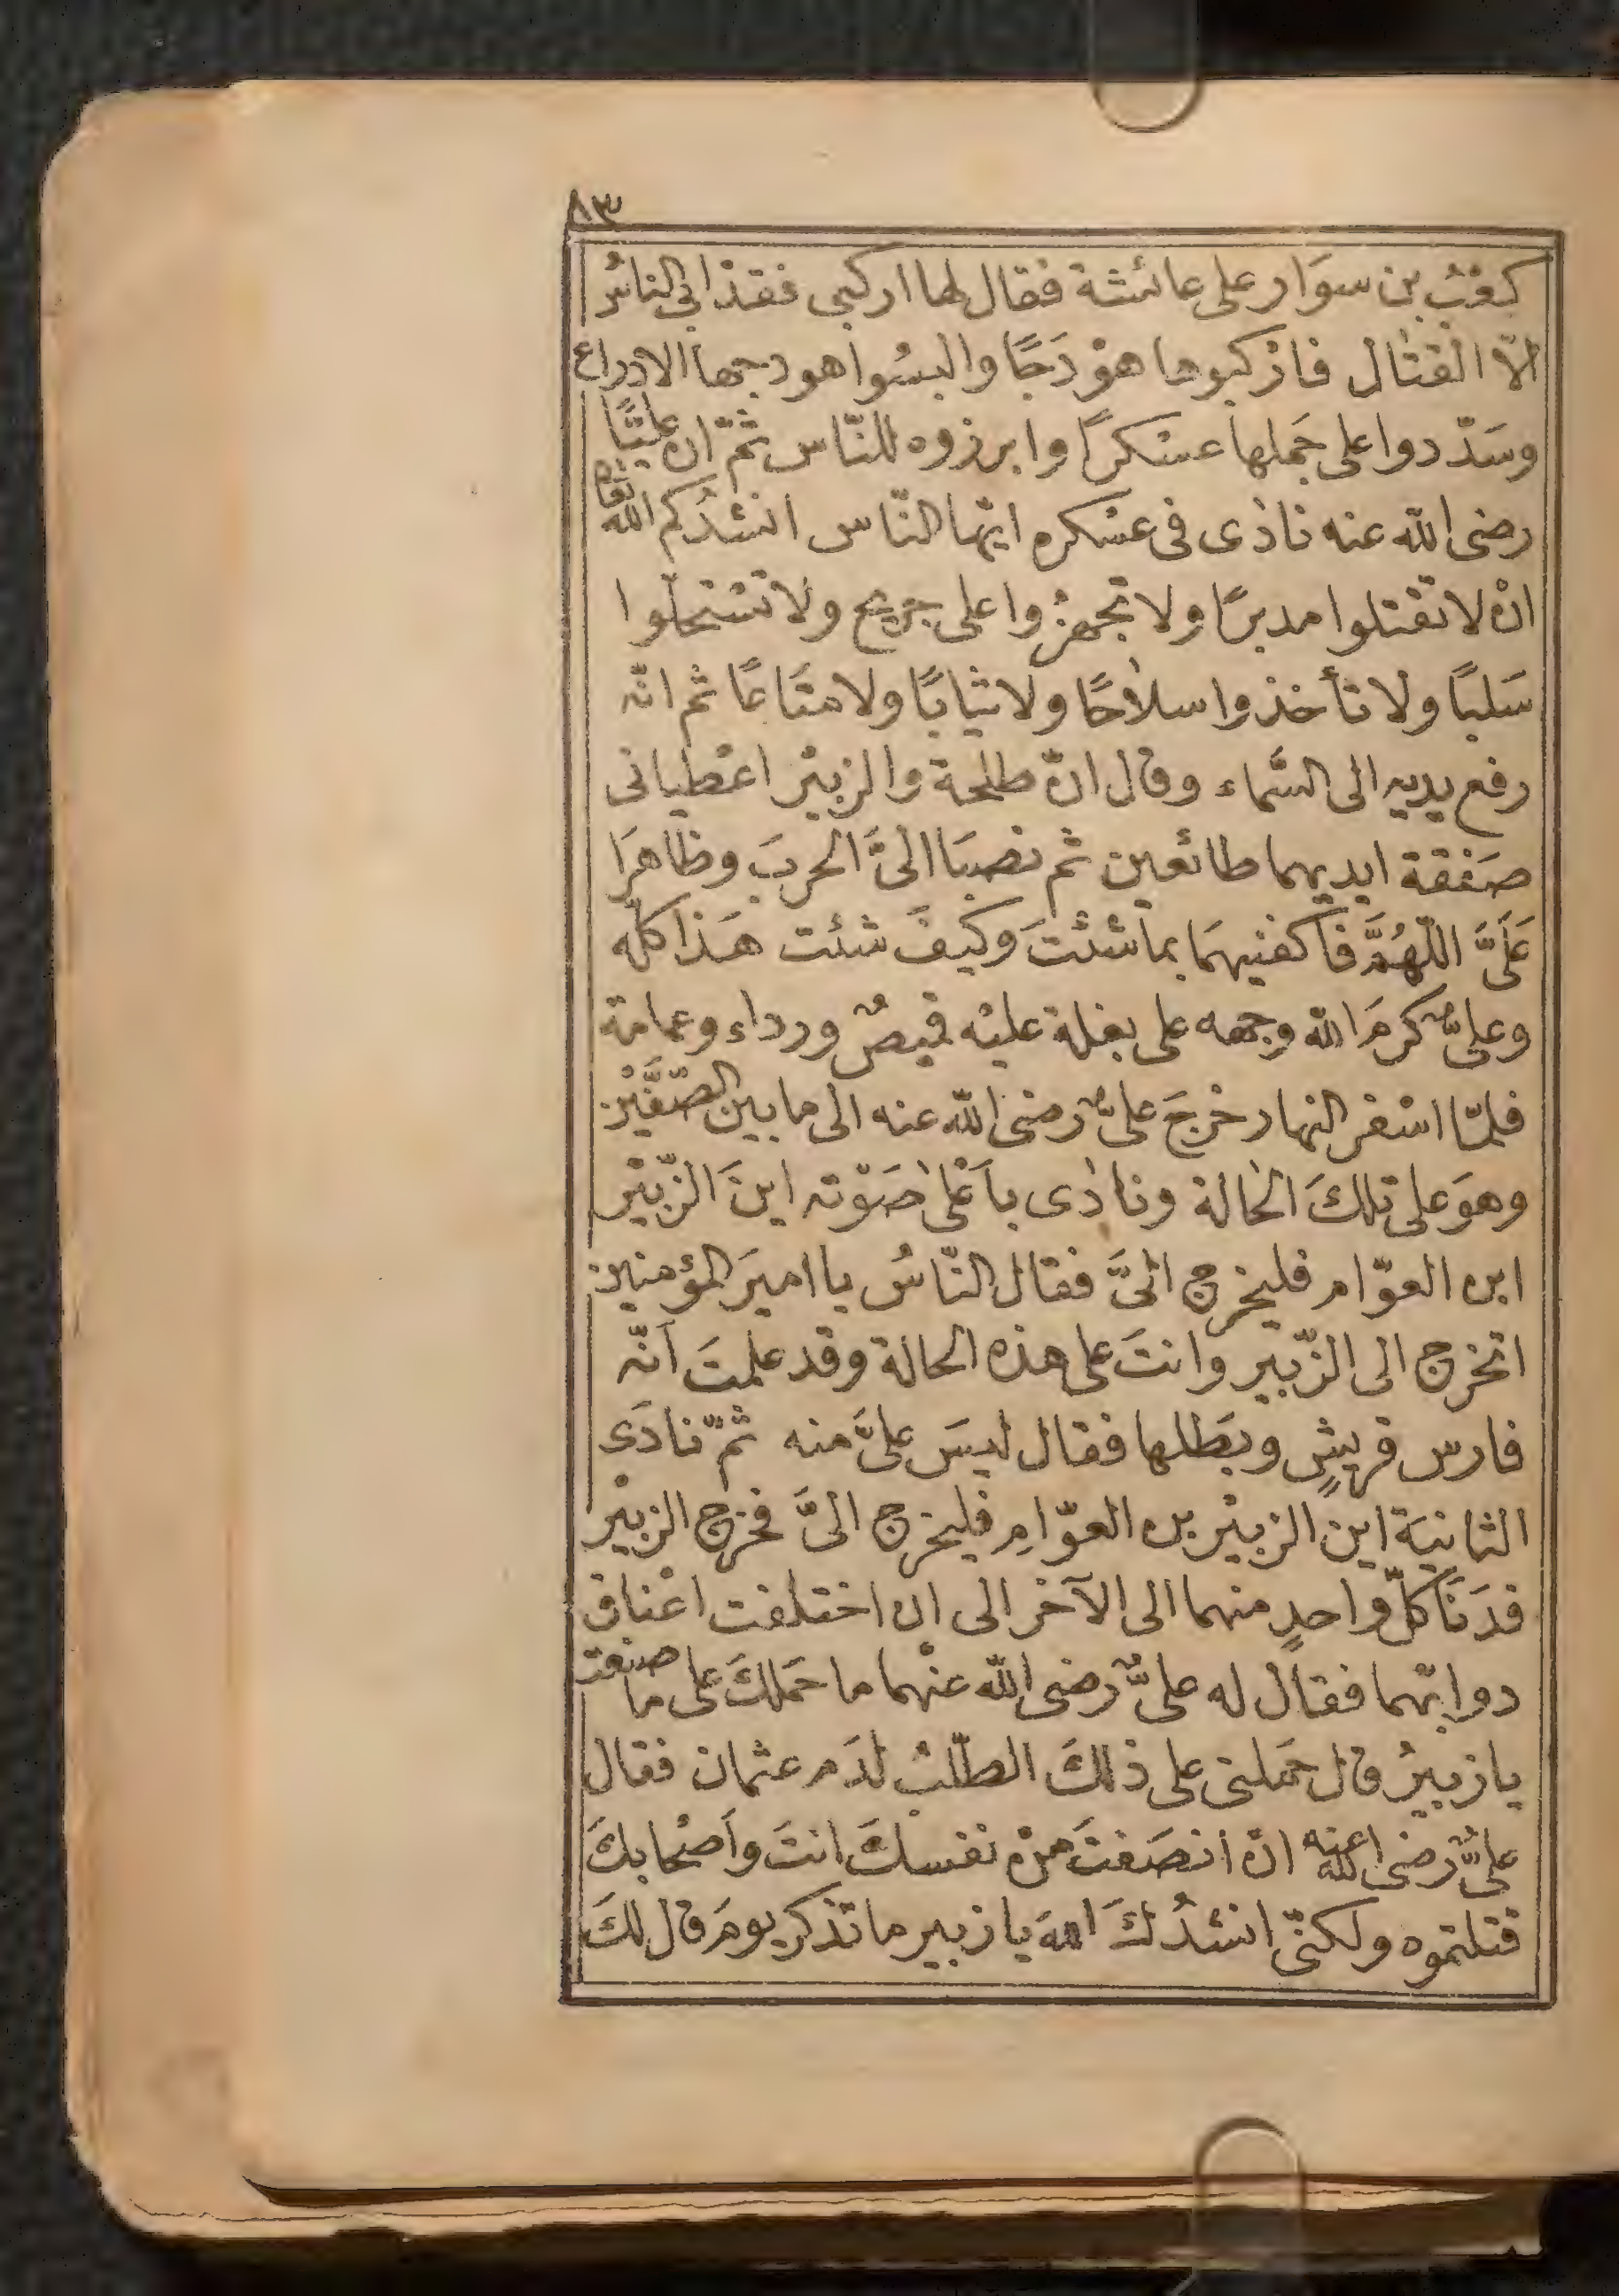 ٨٣
كعْبُ بن سوَار على عائشة فقال لها اركبى فقدْ ابى الناسُ
الّا القتٰال فارْكبوها هوْدَجًا والبسُوا هودجها الادراع
وسَدّدوا على جَملها عسْكرًا وابرزوه للنّاس ثمّ ان عليًّا
رضى الله عنه نادٰى فى عسْكره ايّها النّاس انشدُكم الله تعالى
انْ لا تقتلوا مدبرًا ولا تجهزْوا على جريح ولا تسْتحلّوا
سَلبًا ولا تأخذوا سلاحًا ولا ثيابًا ولا متَاعًا ثم انّه
رفع يديه الى السّماء وقال انّ طلحة والزبيْر اعْطيانى
صَفْقة ايديهما طائعين ثم نصبَا الىَّ الحربَ وظاهرَا
عَلَىَّ اللّهُمَّ فاكفنيهمَا بما شئتَ وكيفَ شئت هَذا كلّه
وعلىٌّ كرمَ الله وجهه على بغلة عليْه قميصٌ ورداء وعمامة
فلمّا اسْفر النهار خرجَ علىٌّ رضى الله عنه الى ما بين الصّفَّيْن
وهوَ على تلكَ الحٰالة ونادٰى بأعْلىٰ صَوْته اينَ الزّبيْر
ابن العوّام فليخرج الىَّ فقال النّاسُ يا اميرَ المؤمنين
اتخرج الى الزّبير وانتَ على هذه الحالة وقد علمتَ أنّه
فارس قريشٍ وبَطلها فقال ليسَ علىَّ منه ثمّ نادَى
الثانيَة اين الزبيْر بن العوّامِ فليخرج الىَّ فخرج الزبيْر
فدَنَا كلّ واحدٍ منهما الى الآخر الى ان اختلفت اعْناق
دوابّهما فقال له علىٌّ رضى الله عنْهما ما حَملكَ على ما صنعْت
يا زبيرُ قال حَملنى على ذلكَ الطّلبُ لدَم عثمان فقال
علىٌّ رضى الله عنه انْ انصَفتَ منْ نفسكَ انتَ وأصْحابكَ
قتلتموه ولكنّى انشدُكَ اللهَ يا زبير ما تذكر يومَ قال لكَ